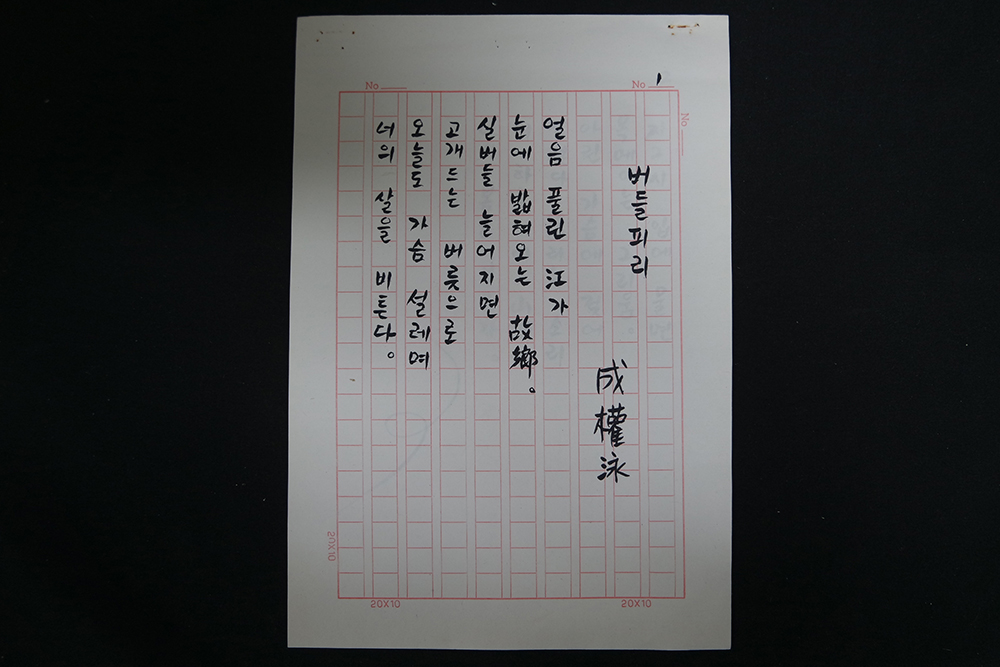 No 1
No
No
버들피리
成權泳
얼음 풀린 江가
눈에 밟혀오는 故鄕。
실버들 늘어지면
고개드는 버릇으로
오늘도 가슴 설레며
너의 살을 비튼다。
20X10
20X10
20X10